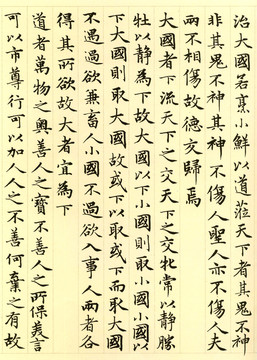 治大國若烹小鮮以道蒞天下者其鬼不神
非其鬼不神其神不傷人聖人亦不傷人夫
兩不相傷故德交歸焉
大國者下流天下之交天下之交牝常以靜勝
牡以靜為下故大國以下小國則取小國小國
下大國則取大國故或下以取或下而取大國
不過欲兼畜人小國不過欲入事人兩者各
得其所欲故大者宜為下
道者萬物之奧善人之寶不善人之所保美言
可以市尊行可以加人人之不善何棄之有故